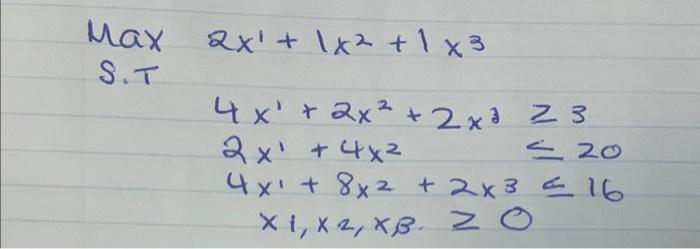 Max 2x¹ + 1x² + 1x3
S.T
4x¹ + 2x² + 2x³ ≥ 3
2x¹ + 4x2 ≤ 20
4x1 + 8x2 + 2x3 ≤ 16
x1, x2, x3. ≥ 0